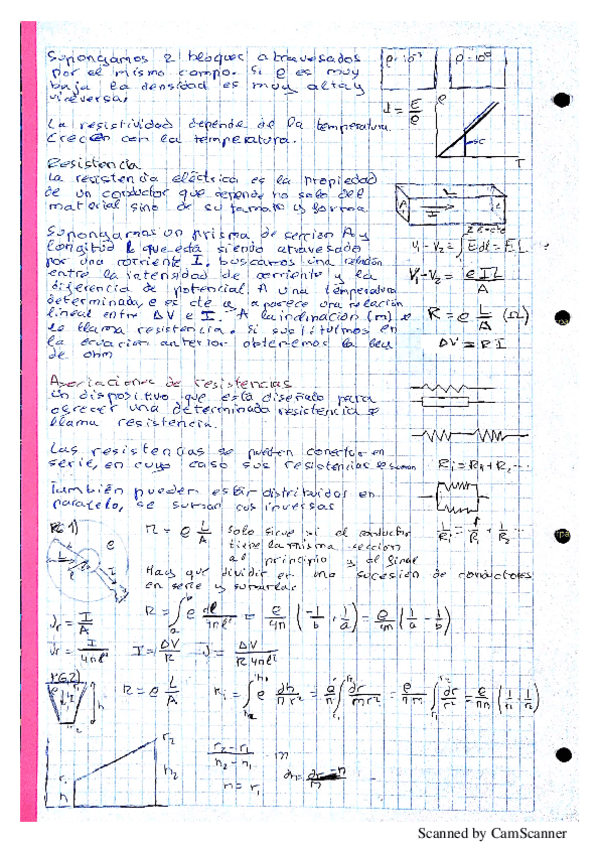 Supongamos 2 bloques atravesados
por el mismo campo. Si ρ es muy
baja la densidad es muy alta y
viceversa.
La resistividad depende de la temperatura.
Crece con la temperatura.
J = E/ρ
ρ
T
Resistencia
La resistencia eléctrica es la propiedad
de un conductor que depende no solo del
material sino de su tamaño y forma
Supongamos un prisma de sección A y
longitud L que está siendo atravesado
por una corriente I, buscamos una relación
entre la intensidad de corriente y la
diferencia de potencial. A una temperatura
determinada, ρ es cte y aparece una relación
lineal entre ΔV e I. A la inclinación (m) se
le llama resistencia. Si sustituimos en
la ecuación anterior obtenemos la ley
de ohm
V₁-V₂ = ∫ E dl = E L
V₁-V₂ = ρIL/A
R = ρ L/A (Ω)
ΔV = R I
Asociaciones de resistencias
Un dispositivo que está diseñado para
ofrecer una determinada resistencia se
llama resistencia.
Las resistencias se pueden conectar en
serie, en cuyo caso sus resistencias se suman
R = R₁ + R₂ ...
También pueden estar distribuidos en
paralelo, se suman sus inversas
= 1/R₁ + 1/R₂ ...
R = ρ L/A
Solo sirve si el conductor
tiene la misma sección
al principio y al final
Hay que dividir en una sucesión de conductores
en serie y sumarlas
R = ∫ ρ dl/4πl² = ρ/4π (-1/b + 1/a) = ρ/4π (1/a - 1/b)
Jr = I/A
Jr = I/4πl²
I = ΔV/R
J = ΔV/R4πl²
R = ρ L/A
h
r₂
h₂
r₂-r₁
n = r₁
Scanned by CamScanner